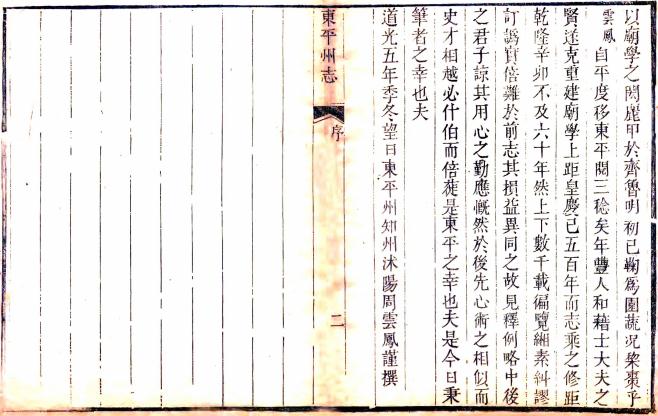 以廟學之閎麗甲於齊魯明初已鞠爲園蔬況棃棗乎
雲鳳自平度移東平閱三稔矣年豐人和藉士大夫之
賢遂克重建廟學上距皇慶已五百年而志乘之修距
乾隆辛卯不及六十年然上下數千載徧覽緗素糾謬
訂譌實倍難於前志其損益異同之故見釋例略中後
之君子諒其用心之勤應慨然於後先心術之相似而
史才相越必什伯而倍蓰是東平之幸也夫是今日秉
筆者之幸也夫
道光五年季冬望日東平州知州沭陽周雲鳳謹撰
東平州志
序
二